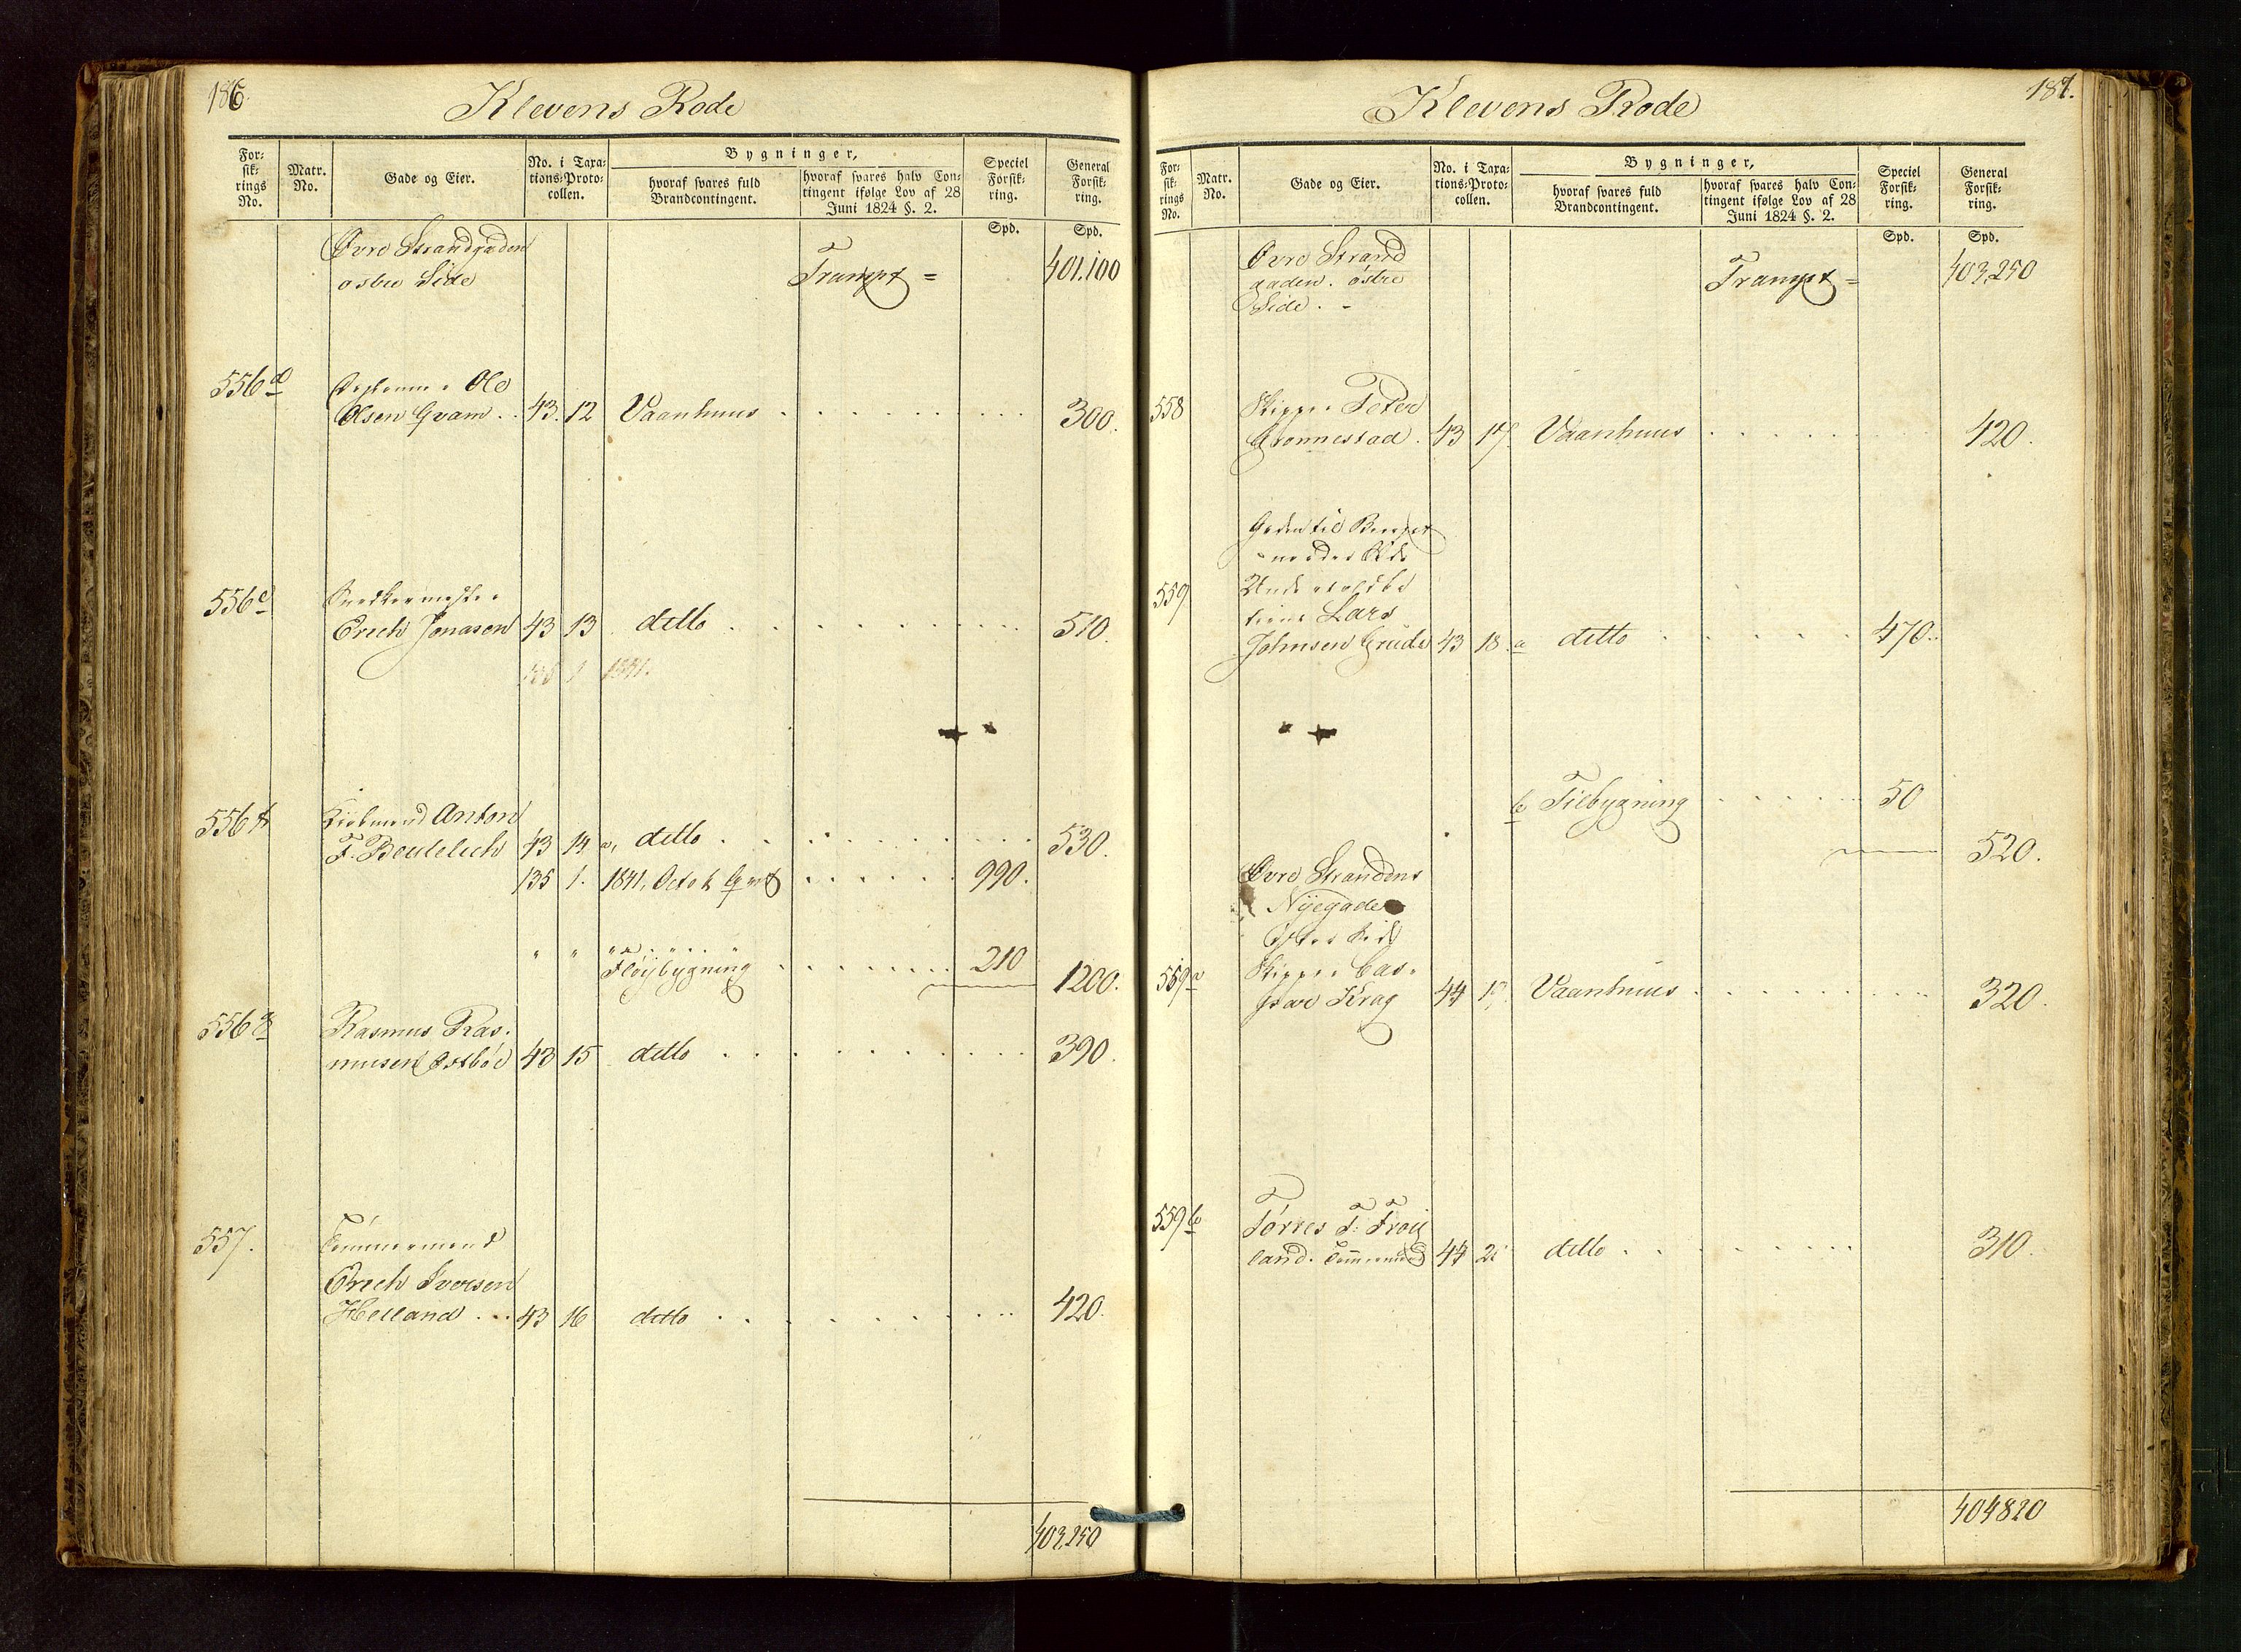 186.
Klevens Rode
For=
sik=
rings
No.
Matr.
No.
Gade og Eier.
No. i Taxa=
tions=Proto=
collen.
Bygninger,
hvoraf svares fuld
Brandcontingent.
hvoraf svares halv Con=
tingent ifølge Lov af 28
Juni 1824 §. 2.
Speciel
Forsik=
ring.
General
Forsik=
ring.
Spd. Spd.
Øvre Strandgaden
østre Side
Transpt = 401.100
556 d Ole
Olsen Qvam . . 43. 12 Vaanhuus 300.
556 e Snedkermester
Erich Jonasen 43 13 ditto 510.
1841.
556 f Kiøbmand Anton
F. 43 14 a, ditto 530.
135 1. 1841. Octob. 990.
" " Fløybygning 210 1200.
556 g Rasmus Ras-
musen Østbøe 43 15 ditto 390.
557. Tømmermand
Erich Iversen
Helland 43 16 ditto 420.
403.250
187.
Klevens Rode
For=
sik=
rings
No.
Matr.
No.
Gade og Eier.
No. i Taxa=
tions=Proto=
collen.
Bygninger,
hvoraf svares fuld
Brandcontingent.
hvoraf svares halv Con=
tingent ifølge Lov af 28
Juni 1824 §. 2.
Speciel
Forsik=
ring.
General
Forsik=
ring.
Spd. Spd.
Øvre Strand
gaden. østre
Side. -
Transpt = 403.250
558 Skipper Peder
Grønnestad. 43 17. Vaanhuus 420.
Gaden til
nordre Side
559
Lars
Johnsen Grude 43 18. a ditto 470.
b Tilbygning 50
520.
Øvre Strandens
Nyegade
Side
559 a Skipper Cas-
par Krag 44 1. Vaanhuus 320.
559 b Tørres T. Frøy
land. Tømmermand 44 2. ditto 310.
404820